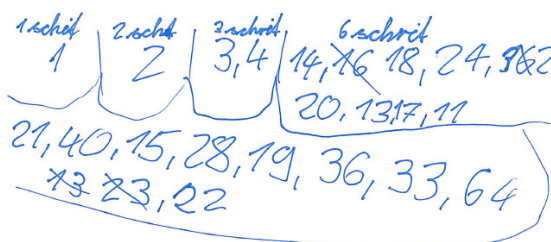 1 schrit 2 schrit 3 schrit 6 schrit
1 2 3,4 14, 16 18, 24,
20, 13,17, 11
21, 40, 15, 28, 19, 36, 33, 64
13 23, 22